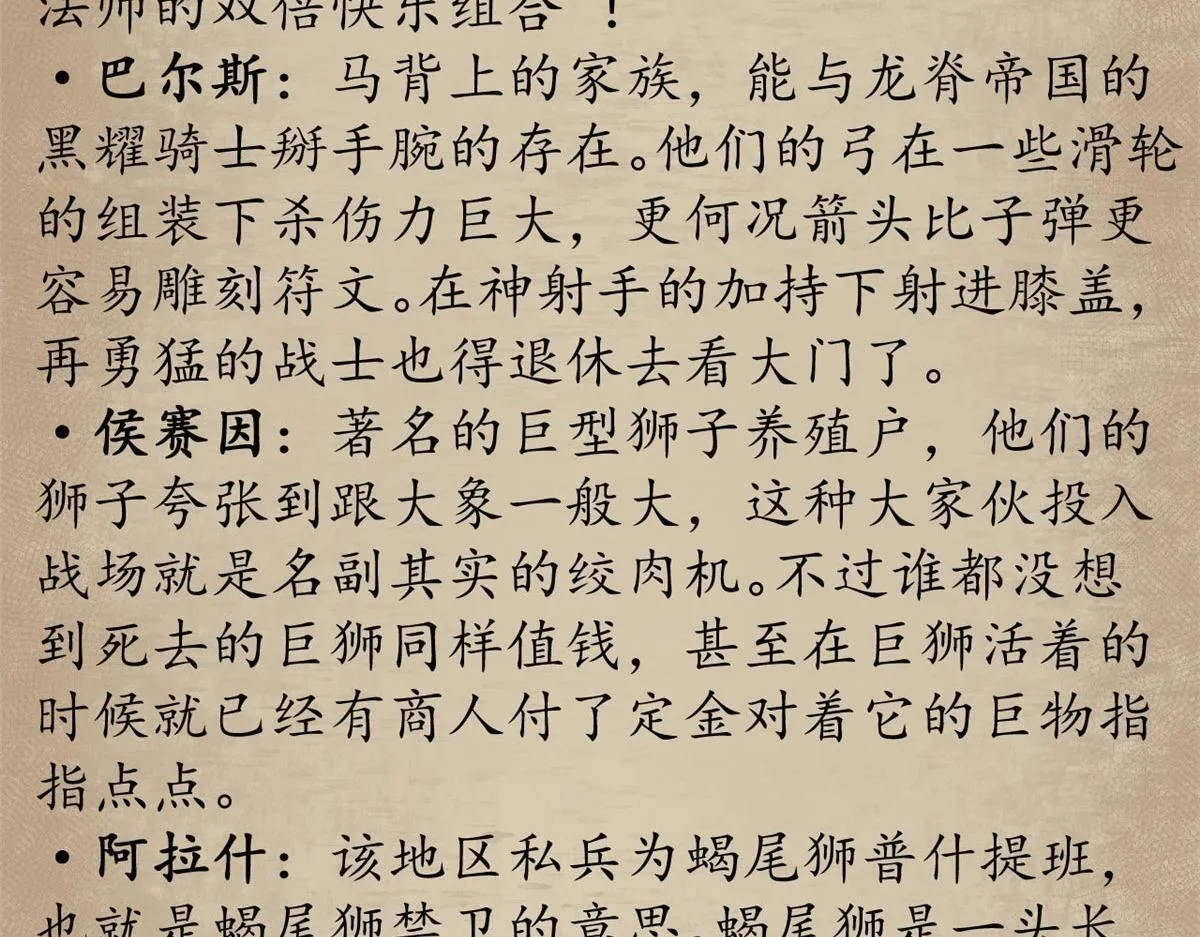 法师的双倍快乐组合"！
·巴尔斯：马背上的家族，能与龙脊帝国的
黑耀骑士掰手腕的存在。他们的弓在一些滑轮
的组装下杀伤力巨大，更何况箭头比子弹更
容易雕刻符文。在神射手的加持下射进膝盖，
再勇猛的战士也得退休去看大门了。
·侯赛因：著名的巨型狮子养殖户，他们的
狮子夸张到跟大象一般大，这种大家伙投入
战场就是名副其实的绞肉机。不过谁都没想
到死去的巨狮同样值钱，甚至在巨狮活着的
时候就已经有商人付了定金对着它的巨物指
指点点。
·阿拉什：该地区私兵为蝎尾狮普什提班，
也就是蝎尾狮禁卫的意思。蝎尾狮是一头长